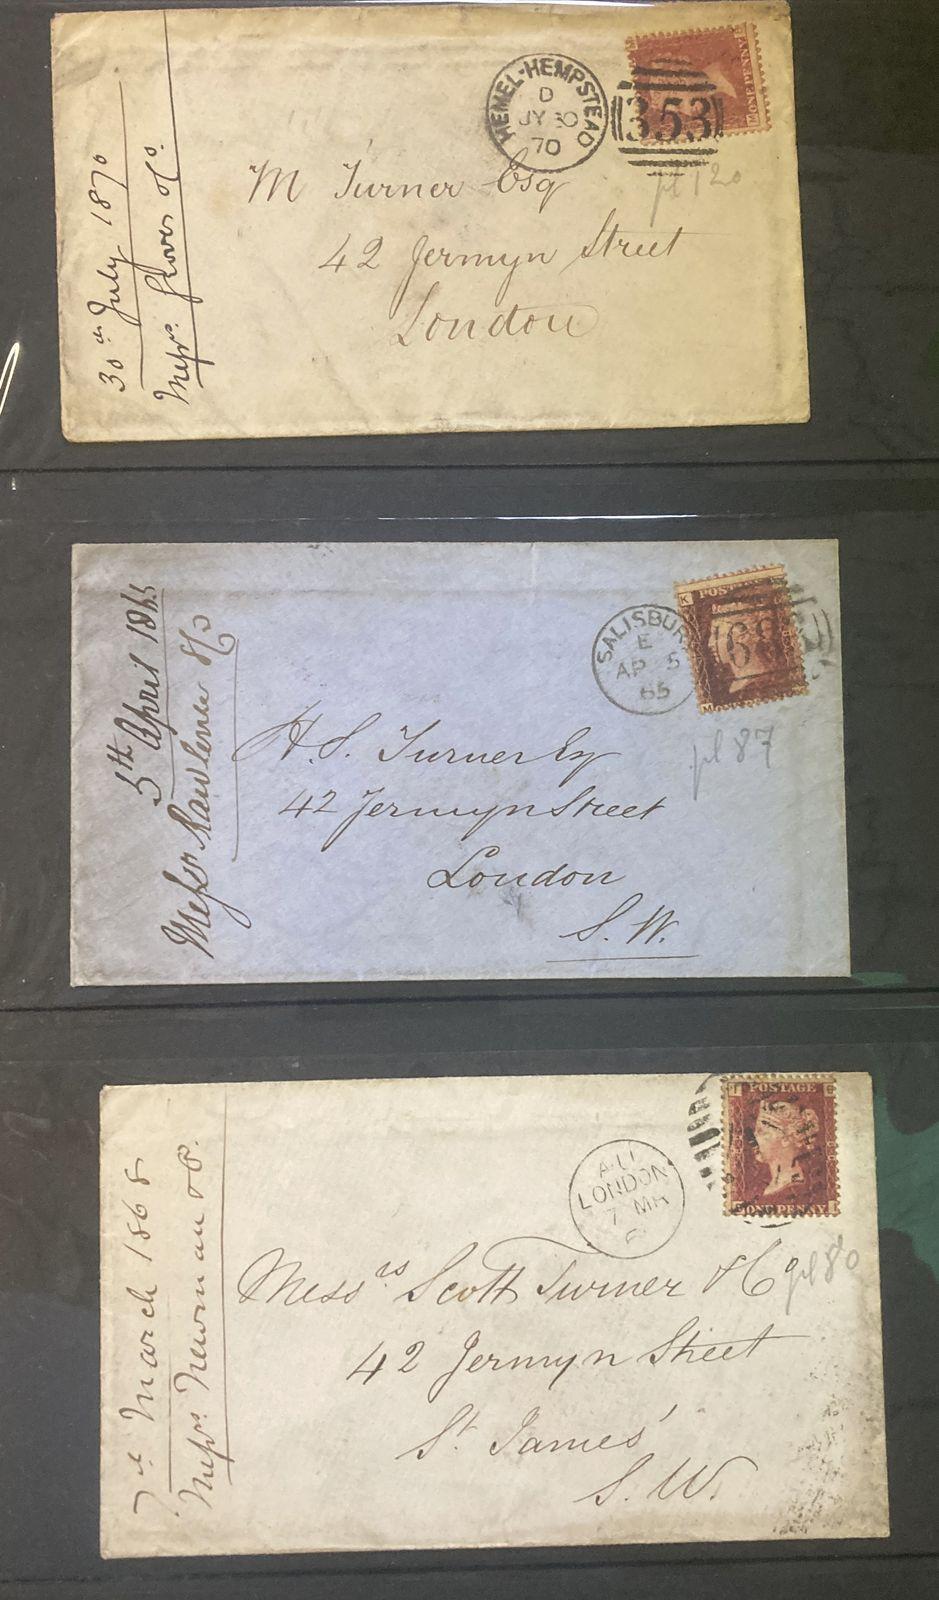 HEMEL-HEMPSTEAD
D
JY 30
70
353
ONE PENNY
pl 120
M Turner Esq
42 Jermyn Street
London
30th July 1870
Messrs Grover & Co.
SALISBURY
E
AP 5
65
K POSTAGE
M
68
pl 87
H. S. Turner Esq
42 Jermyn Street
London
S. W.
5th April 1865
Messrs Rawlence & Co
POSTAGE
ONE PENNY
LONDON
7 MR
pl 80
Messrs Scott Turner & Co
42 Jermyn Street
St James'
S. W.
7th March 1868
Messrs Newman